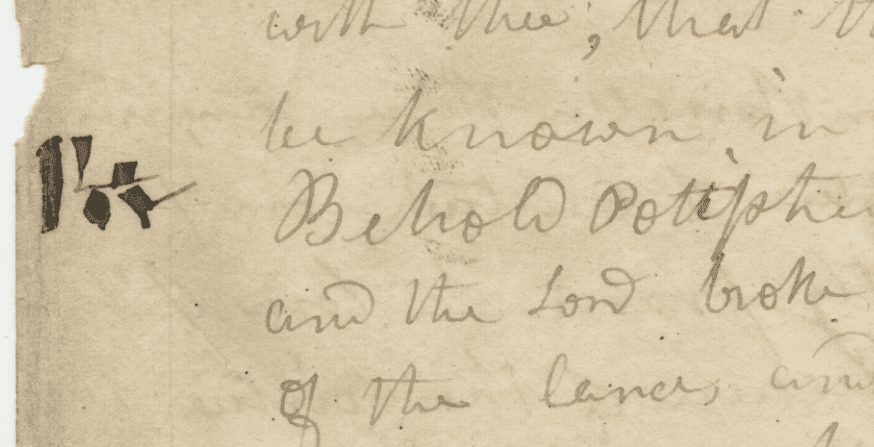 with thee, that
be known in
Behold Potiphe
and the Lord broke
of the land, and